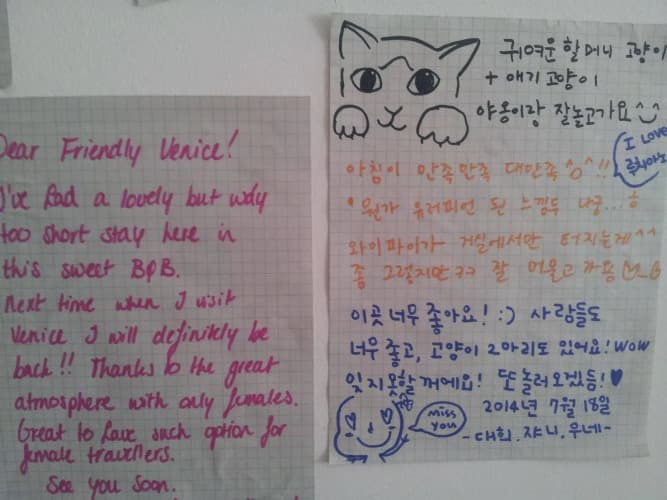 Dear Friendly Venice!
I've had a lovely but way
too short stay here in
this sweet B&B.
Next time when I visit
Venice I will definitely be
back!! Thanks to the great
atmosphere with only females.
Great to have such option for
female travellers.
See you soon.
귀여운 할머니 고양이
+ 애기 고양이
야옹이랑 잘놀고가요
I LOVE
루치아노
아침이 만족만족 대만족^o^!!
뭔가 유러피언 된 느낌두 나궁...ㅎ
와이파이가 거실에서만 터지는게^^
좀 그렇지만ㅋㅋ 잘 머물고가용
이곳 너무 좋아요! :) 사람들도
너무 좋고, 고양이 2마리도 있어요! WOW
잊지못할꺼에요! 또놀러오겠듬! ♥
miss you
2014년 7월 18일
-대희.쟈니.우네-